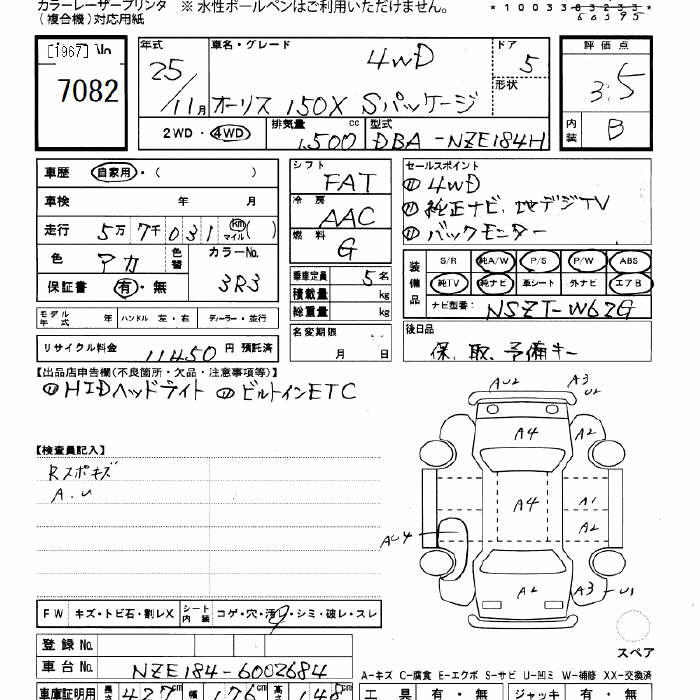 カラーレーザープリンタ ※ 水性ボールペンはご利用いただけません。
(複合機)対応用紙
[1967]
7082
年式 車名・グレード 4WD ドア 5
25/11月 オーリス 150X Sパッケージ
形状
評価点 3.5
内装 B
2WD・4WD 排気量 1,500 cc 型式 DBA-NZE184H
車歴 自家用・( )
車検 年 月
走行 5万 7千 0 3 1 km マイル ( )
色 アカ 色替 カラーNo. 3R3
保証書 有・無
モデル年式 年 ハンドル 左・右 ディーラー・並行
リサイクル料金 11450 円 預託済
シフト FAT
冷房 AAC
燃料 G
乗車定員 5 名
積載量 kg
総重量 kg
名変期限
月 日
セールスポイント
① 4WD
① 純正ナビ、地デジTV
① バックモニター
装備品 S/R 純A/W P/S P/W ABS
純TV 純ナビ 革シート 外ナビ エアB
ナビ型番: NSZT-W62G
後日品
保、取、予備キー
【出品店申告欄(不良箇所・欠品・注意事項等)】
① HIDヘッドライト ① ビルトインETC
【検査員記入】
Rスポキズ
A.U
AU2 A3 U2
A4 A2
A4 A1
A2
AU4
A2 A3 U1
FW キズ・トビ石・割レX シート内装 コゲ・穴・汚レ・シミ・破レ・スレ
スペア
登録No.
車台No. NZE184-6002684
A-キズ C-腐食 E-エクボ S-サビ U-凹ミ W-補修 XX-交換済
車庫証明用 長さ 427cm 幅 176cm 高さ 148cm
工具 有・無 ジャッキ 有・無